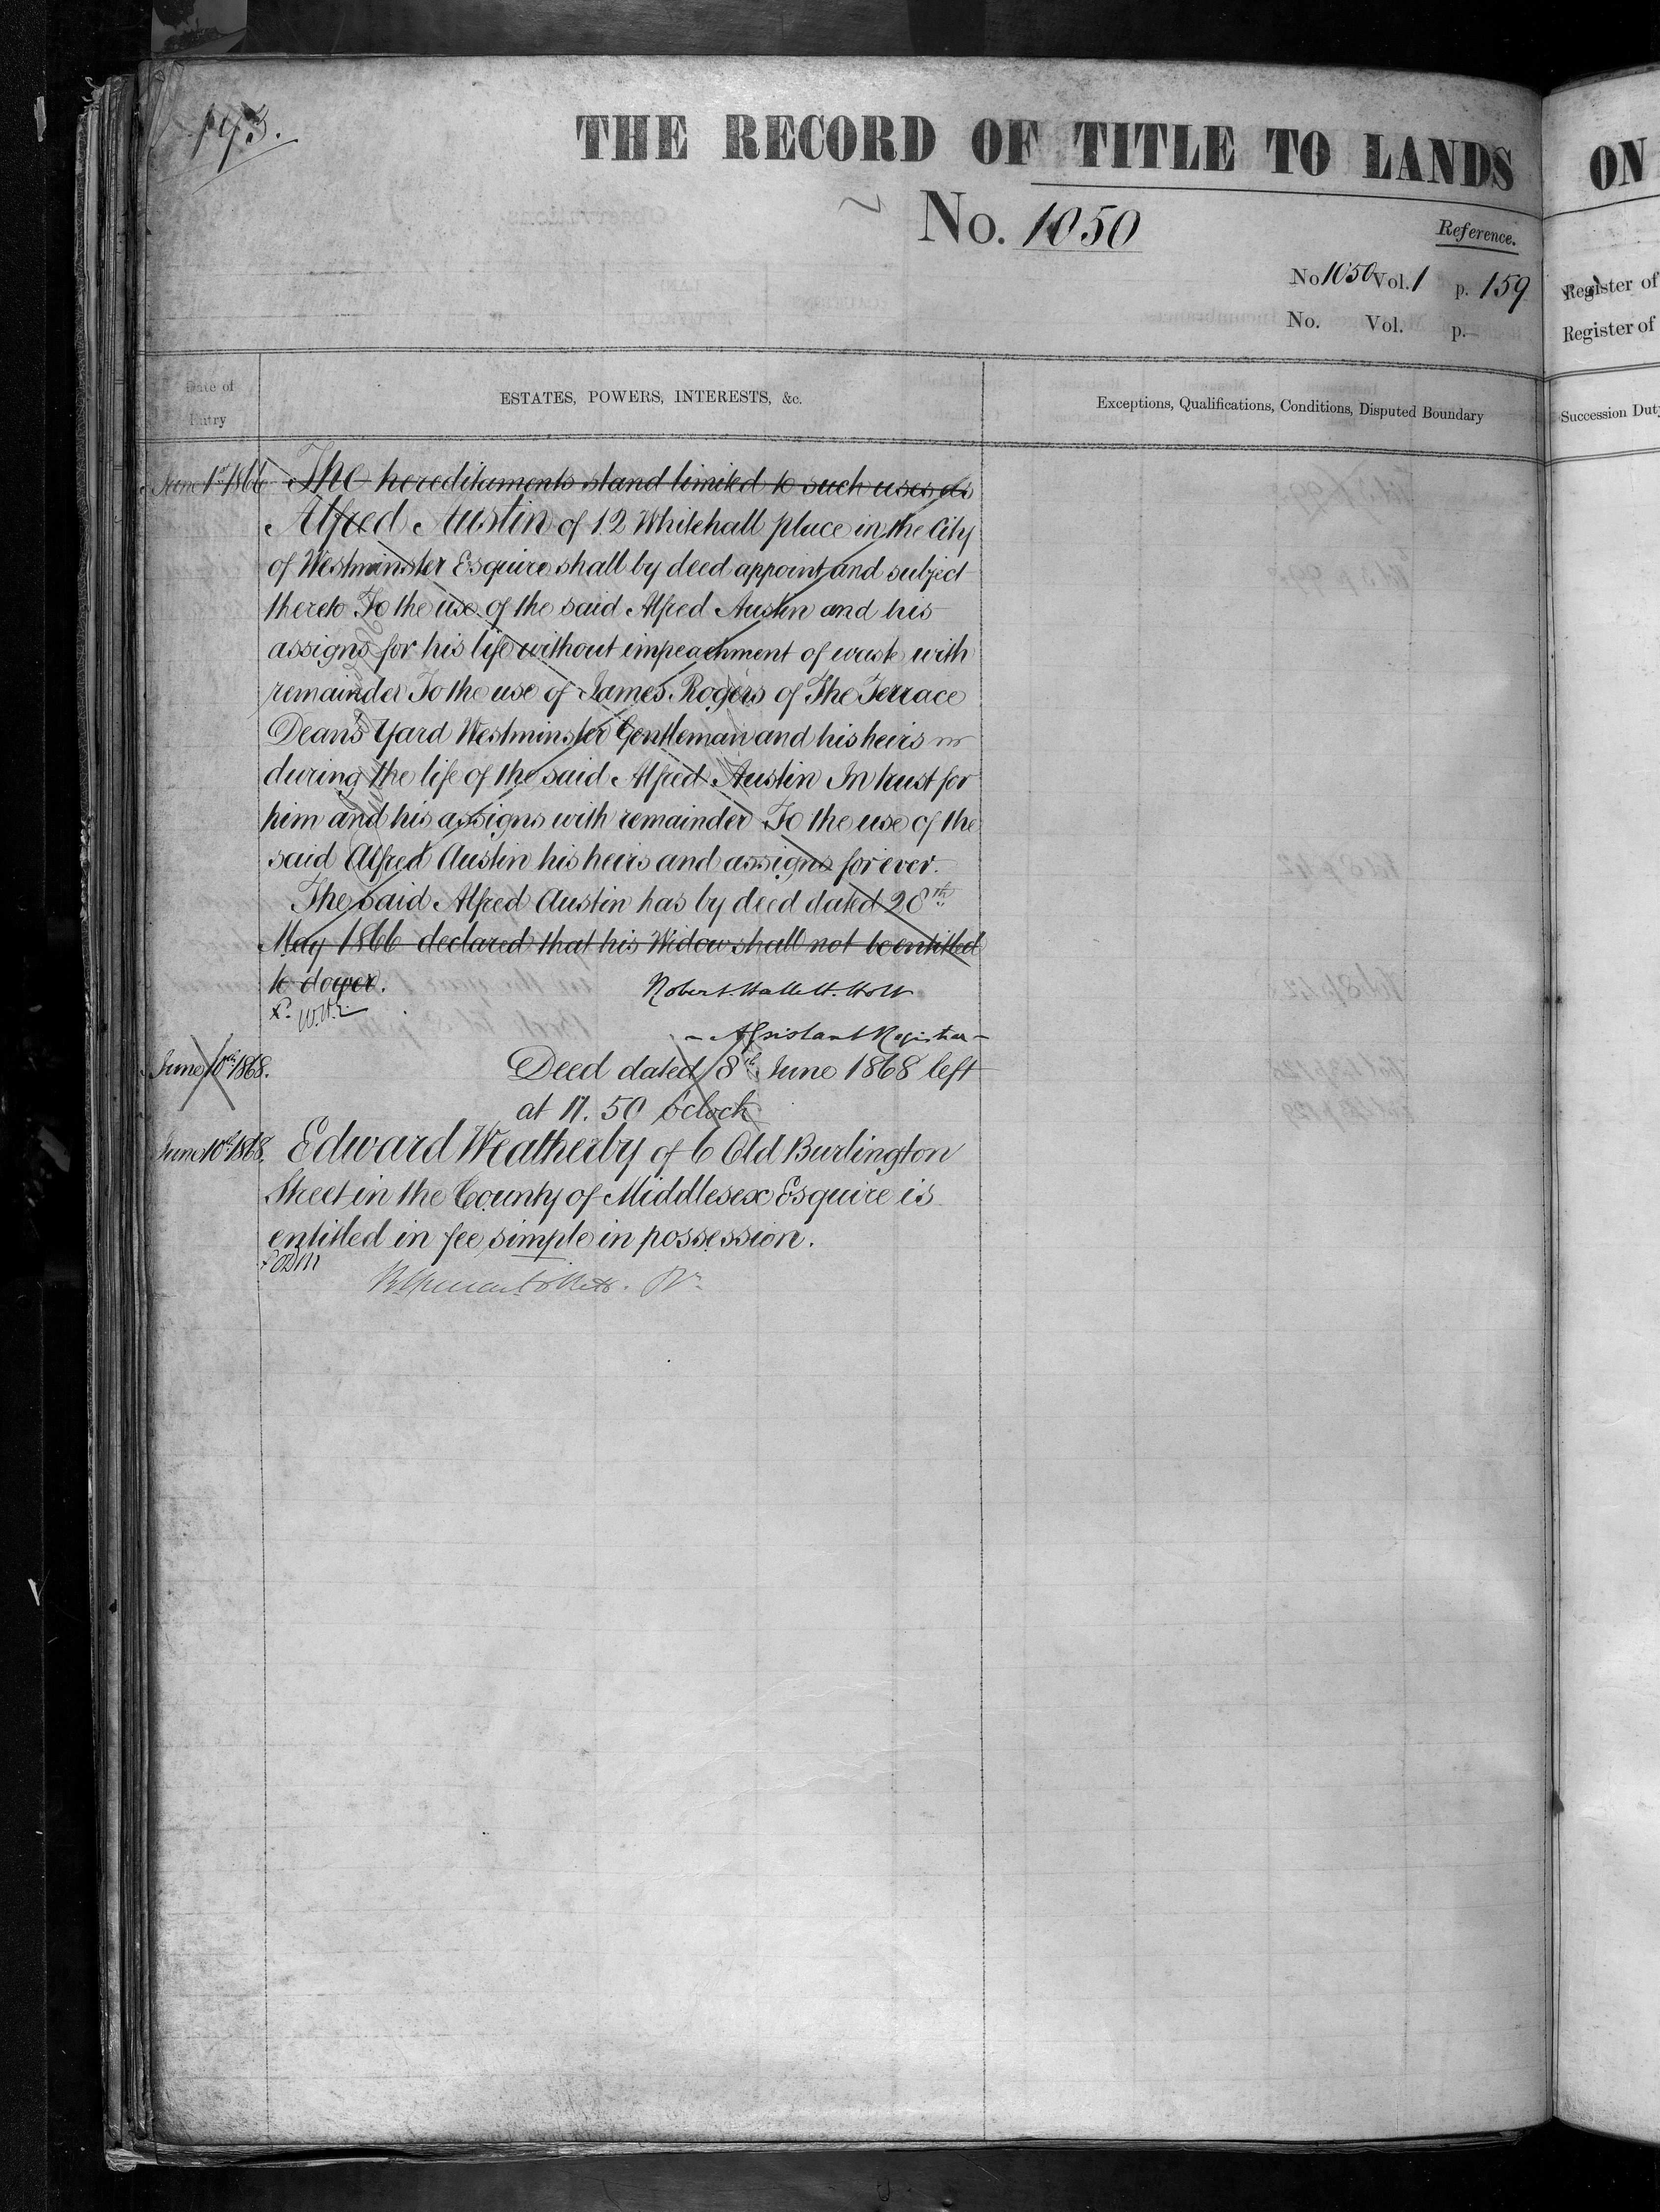 193.
THE RECORD OF TITLE TO LANDS
ON
No. 1050
Reference.
No 1050 Vol. 1 p. 159
Register of
No. Vol. p.
Register of
Date of Entry
ESTATES, POWERS, INTERESTS, &c.
Exceptions, Qualifications, Conditions, Disputed Boundary
Succession Duty
June 1st 1866 The hereditaments stand limited to such uses as
Alfred Austin of 12 Whitehall place in the City
of Westminster Esquire shall by deed appoint and subject
thereto To the use of the said Alfred Austin and his
assigns for his life without impeachment of waste with
remainder To the use of James Rogers of The Terrace
Deans Yard Westminster Gentleman and his heirs
during the life of the said Alfred Austin In trust for
him and his assigns with remainder To the use of the
said Alfred Austin his heirs and assigns for ever.
The said Alfred Austin has by deed dated 28th
May 1866 declared that his Widow shall not be entitled
to dower.
Robert Hallett Holt
Assistant Registrar
June 10th 1868. Deed dated 8th June 1868 left
at 11.50 o'clock
June 10th 1868. Edward Weatherby of 6 Old Burlington
Street in the County of Middlesex Esquire is
entitled in fee simple in possession.